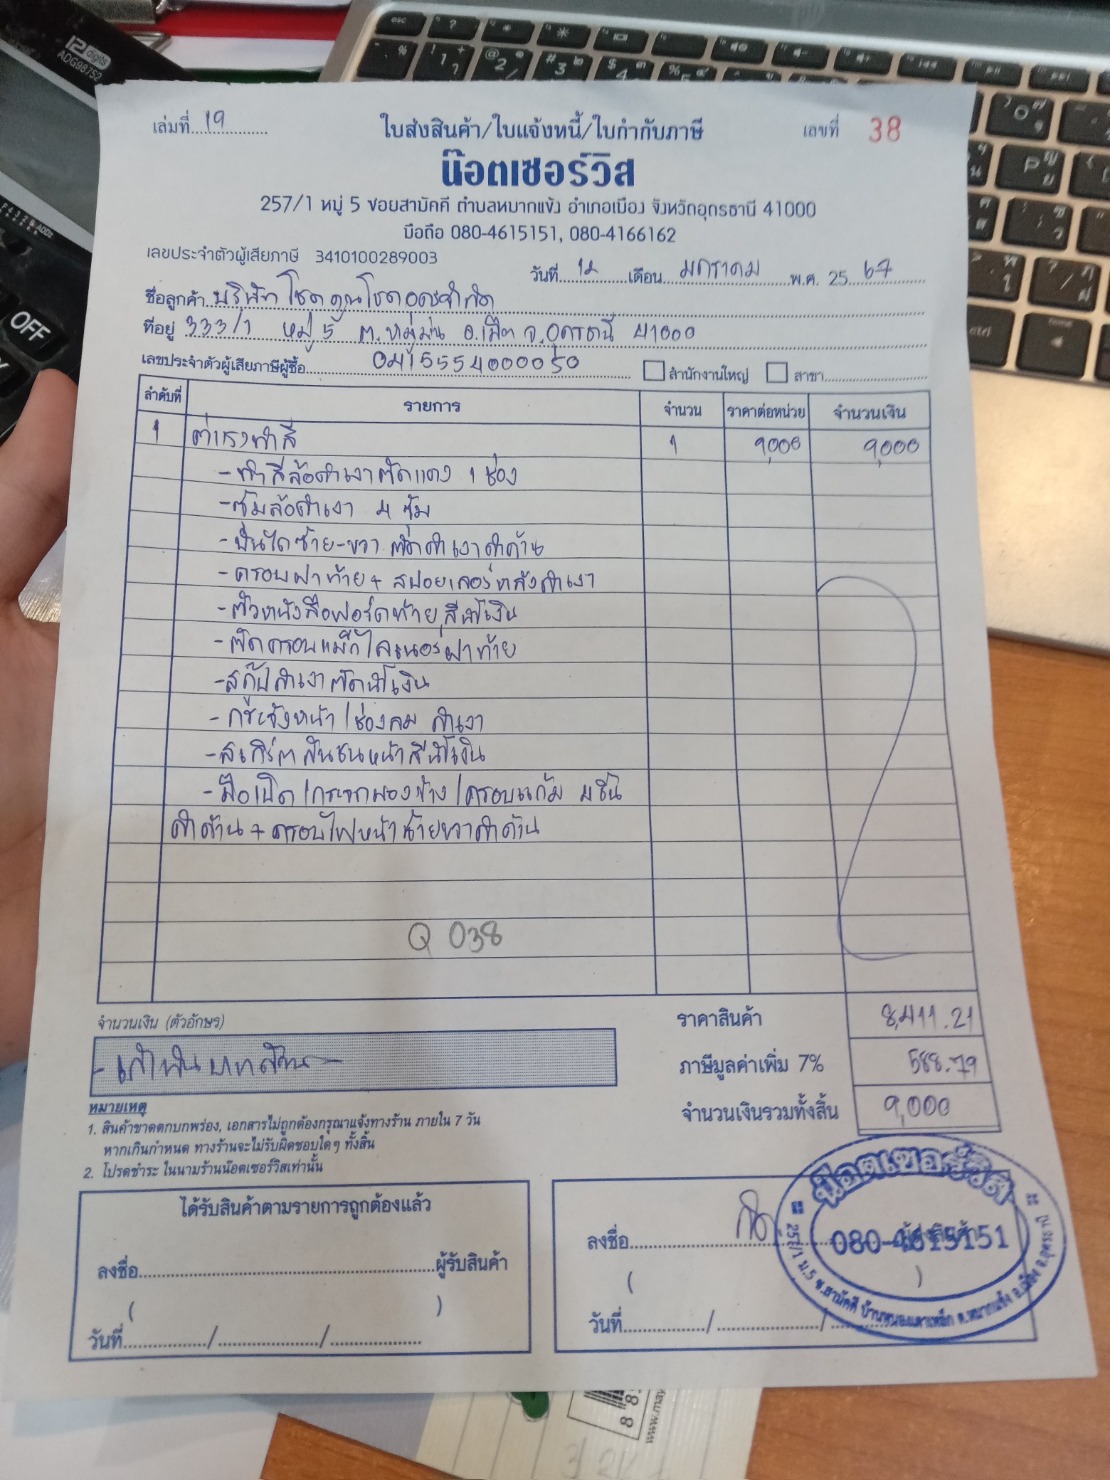 12 digits
ADG98752
OFF
เล่มที่ 19
ใบส่งสินค้า/ใบแจ้งหนี้/ใบกำกับภาษี
เลขที่ 38
น๊อตเซอร์วิส
257/1 หมู่ 5 ซอยสามัคคี ตำบลหมากแข้ง อำเภอเมือง จังหวัดอุดรธานี 41000
มือถือ 080-4615151, 080-4166162
เลขประจำตัวผู้เสียภาษี 3410100289003
วันที่ 12 เดือน มกราคม พ.ศ. 25 67
ชื่อลูกค้า บริษัท โชคคูณโชค จำกัด
ที่อยู่ 333/1 หมู่ 5 ต.หมูม่น อ.เมือง จ.อุดรธานี 41000
เลขประจำตัวผู้เสียภาษีผู้ซื้อ 0415554000050 สำนักงานใหญ่ สาขา
ลำดับที่ รายการ จำนวน ราคาต่อหน่วย จำนวนเงิน
1 ค่าแรงทำสี 1 9,000 9,000
- ทำสีล้อดำเงาตัดแดง 1 ช่อง
- ซุ้มล้อดำเงา 4 ซุ้ม
- บันไดซ้าย-ขวา ตัดดำเงาดำด้าน
- ครอบฝาท้าย + สปอยเลอร์หลังดำเงา
- ตัวหนังสือฟอร์ดท้าย สีน้ำเงิน
- ตัดครอบแม็กไลเนอร์ฝาท้าย
- สกู๊ปดำเงาตัดน้ำเงิน
- กระจังหน้า/ช่องลม ดำเงา
- สเกิร์ตกันชนหน้าสีน้ำเงิน
- มือเปิด/กระจกมองข้าง/ครอบแก้ม 4 ชิ้น
ดำด้าน + ครอบไฟหน้าซ้ายขวาดำด้าน
Q 038
จำนวนเงิน (ตัวอักษร)
- เก้าพันบาทถ้วน -
ราคาสินค้า 8,411.21
ภาษีมูลค่าเพิ่ม 7% 588.79
จำนวนเงินรวมทั้งสิ้น 9,000
หมายเหตุ
1. สินค้าขาดตกบกพร่อง, เอกสารไม่ถูกต้องกรุณาแจ้งทางร้าน ภายใน 7 วัน
หากเกินกำหนด ทางร้านจะไม่รับผิดชอบใดๆ ทั้งสิ้น
2. โปรดชำระ ในนามร้านน๊อตเซอร์วิสเท่านั้น
ได้รับสินค้าตามรายการถูกต้องแล้ว
ลงชื่อ ผู้รับสินค้า
( )
วันที่ / /
ลงชื่อ ผู้ส่งสินค้า
( )
วันที่ / /
น๊อตเซอร์วิส
080-4615151
257/1 ม.5 ซ.สามัคคี บ้านหนองเตาเหล็ก ต.หมากแข้ง อ.เมือง จ.อุดรธานี